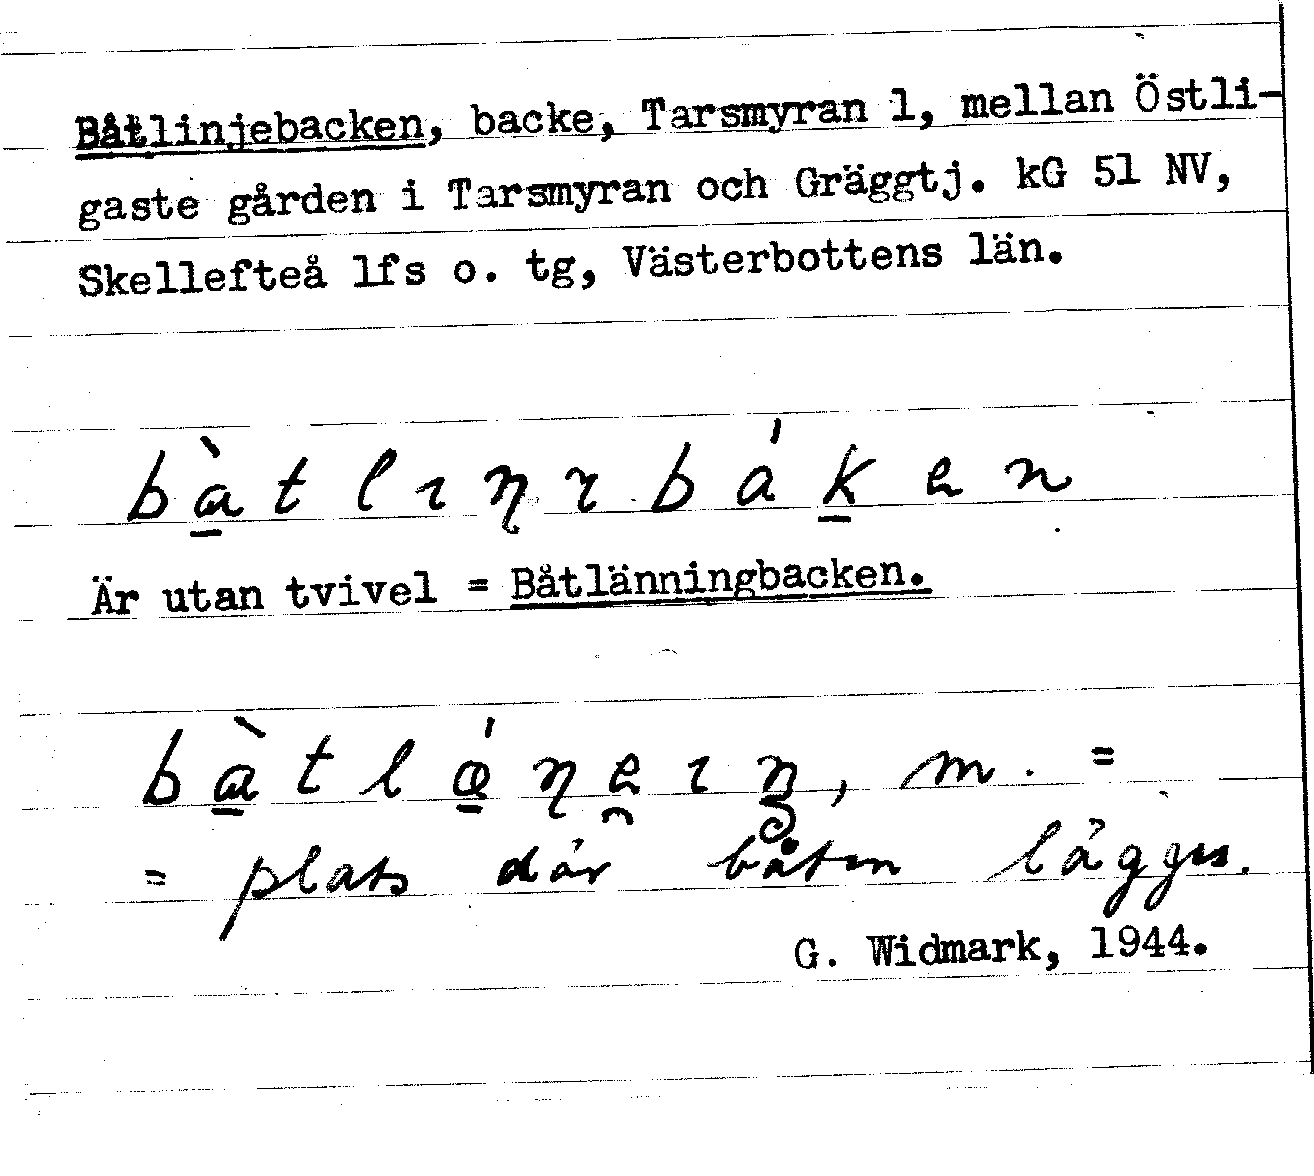 Båtlinjebacken, backe, Tarsmyran 1, mellan Östli-
gaste gården i Tarsmyran och Gräggtj. kG 51 NV,
Skellefteå lfs o. tg, Västerbottens län.
bàtlɪŋɪbáken
Är utan tvivel = Båtlänningbacken.
bàtlǿŋeɪŋ, m. =
= plats där båten lägges.
G. Widmark, 1944.